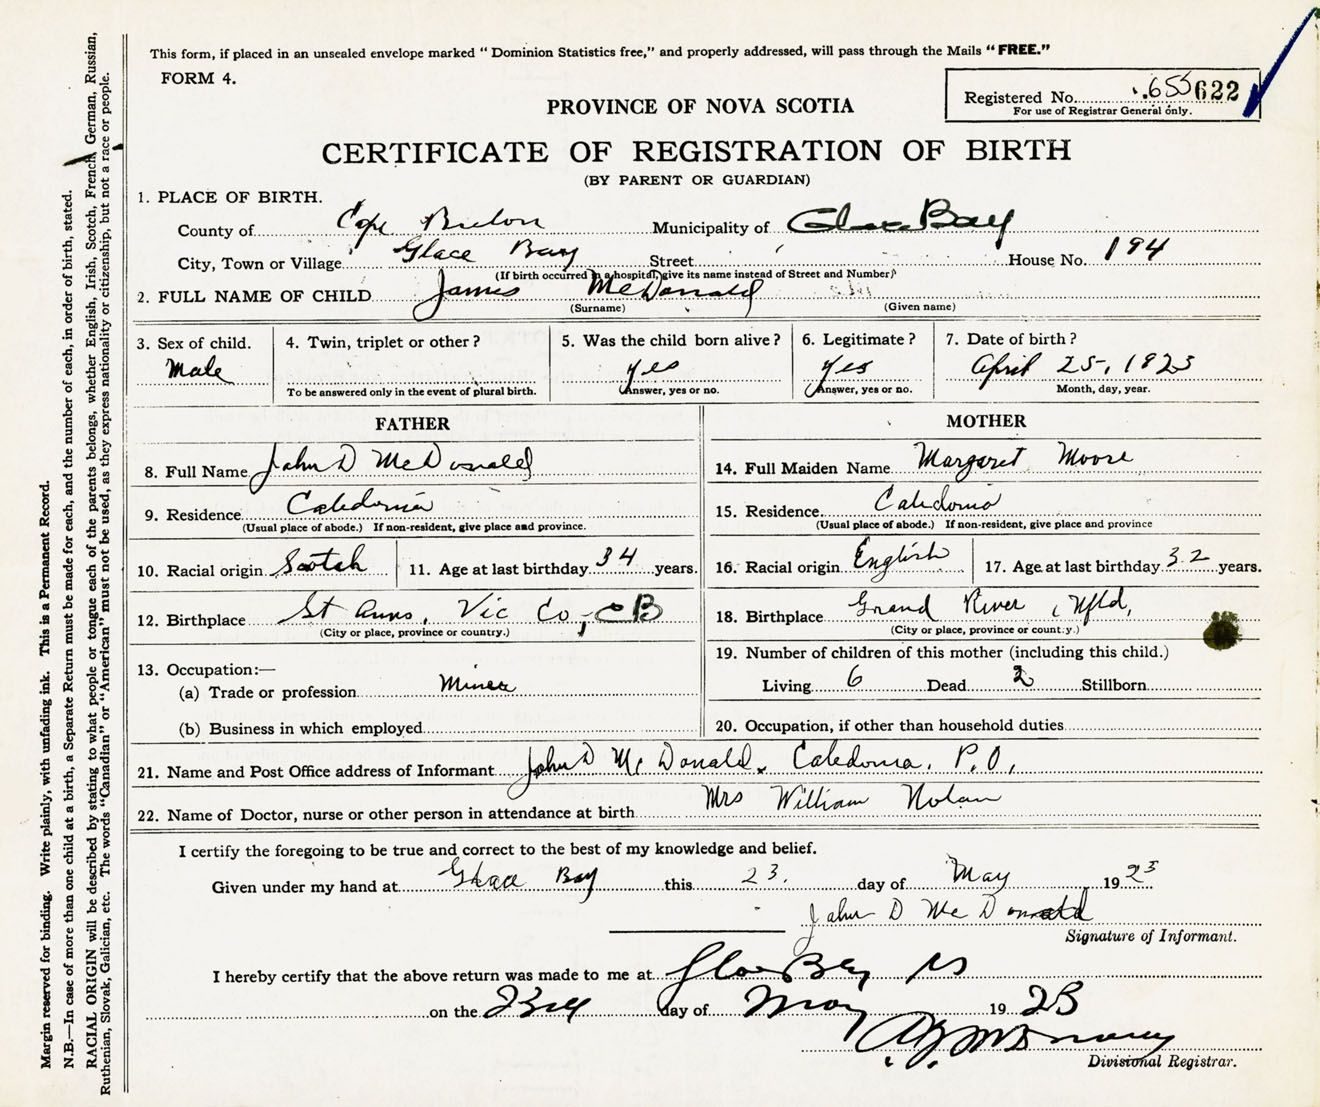 This form, if placed in an unsealed envelope marked "Dominion Statistics free," and properly addressed, will pass through the Mails "FREE."
FORM 4.
Registered No. 655 622
For use of Registrar General only.
PROVINCE OF NOVA SCOTIA
CERTIFICATE OF REGISTRATION OF BIRTH
(BY PARENT OR GUARDIAN)
1. PLACE OF BIRTH.
County of Cape Breton Municipality of Glace Bay
City, Town or Village Glace Bay Street House No. 194
(If birth occurred in a hospital, give its name instead of Street and Number)
2. FULL NAME OF CHILD James McDonald
(Surname) (Given name)
3. Sex of child. Male
4. Twin, triplet or other?
To be answered only in the event of plural birth.
5. Was the child born alive? yes
Answer, yes or no.
6. Legitimate? Yes
Answer, yes or no.
7. Date of birth? April 25, 1923
Month, day, year.
FATHER
8. Full Name John D McDonald
9. Residence Caledonia
(Usual place of abode.) If non-resident, give place and province.
10. Racial origin Scotch 11. Age at last birthday 34 years.
12. Birthplace St Anns, Vic Co, CB
(City or place, province or country.)
13. Occupation:—
(a) Trade or profession Miner
(b) Business in which employed
MOTHER
14. Full Maiden Name Margaret Moore
15. Residence Caledonia
(Usual place of abode.) If non-resident, give place and province
16. Racial origin English 17. Age at last birthday 32 years.
18. Birthplace Grand River, Nfld,
(City or place, province or country.)
19. Number of children of this mother (including this child.)
Living 6 Dead 2 Stillborn
20. Occupation, if other than household duties
21. Name and Post Office address of Informant John D McDonald. Caledonia. P.O.
22. Name of Doctor, nurse or other person in attendance at birth Mrs William Nolan
I certify the foregoing to be true and correct to the best of my knowledge and belief.
Given under my hand at Glace Bay this 23. day of May 1923
John D McDonald
Signature of Informant.
I hereby certify that the above return was made to me at Glace Bay NS
on the 23rd day of May 1923
Divisional Registrar.
Margin reserved for binding. Write plainly, with unfading ink. This is a Permanent Record.
N.B.—In case of more than one child at a birth, a Separate Return must be made for each, and the number of each, in order of birth, stated.
RACIAL ORIGIN will be described by stating to what people or tongue each of the parents belongs, whether English, Irish, Scotch, French, German, Russian,
Ruthenian, Slovak, Galician, etc. The words "Canadian" or "American" must not be used, as they express nationality or citizenship, but not a race or people.